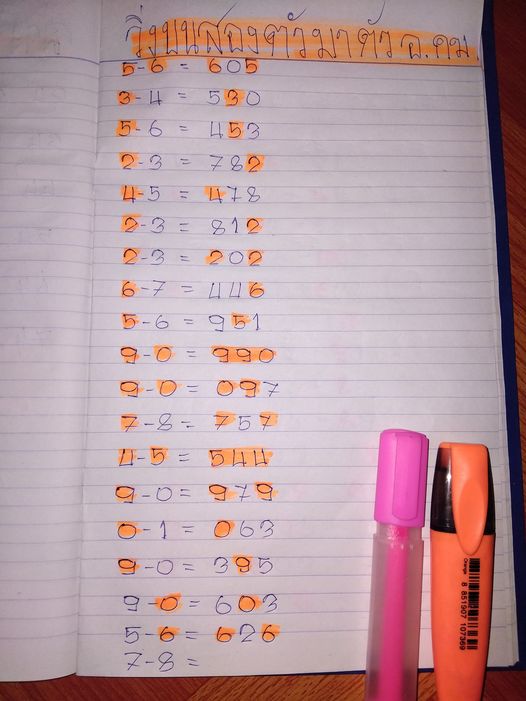 วิ่งบนสองตัวมาตัว อ.ดม
5-6 = 605
3-4 = 530
5-6 = 453
2-3 = 782
4-5 = 478
2-3 = 812
2-3 = 202
6-7 = 446
5-6 = 951
9-0 = 990
9-0 = 097
7-8 = 757
4-5 = 544
9-0 = 979
0-1 = 063
9-0 = 395
9-0 = 603
5-6 = 626
7-8 =
Orange
8 851907 107369